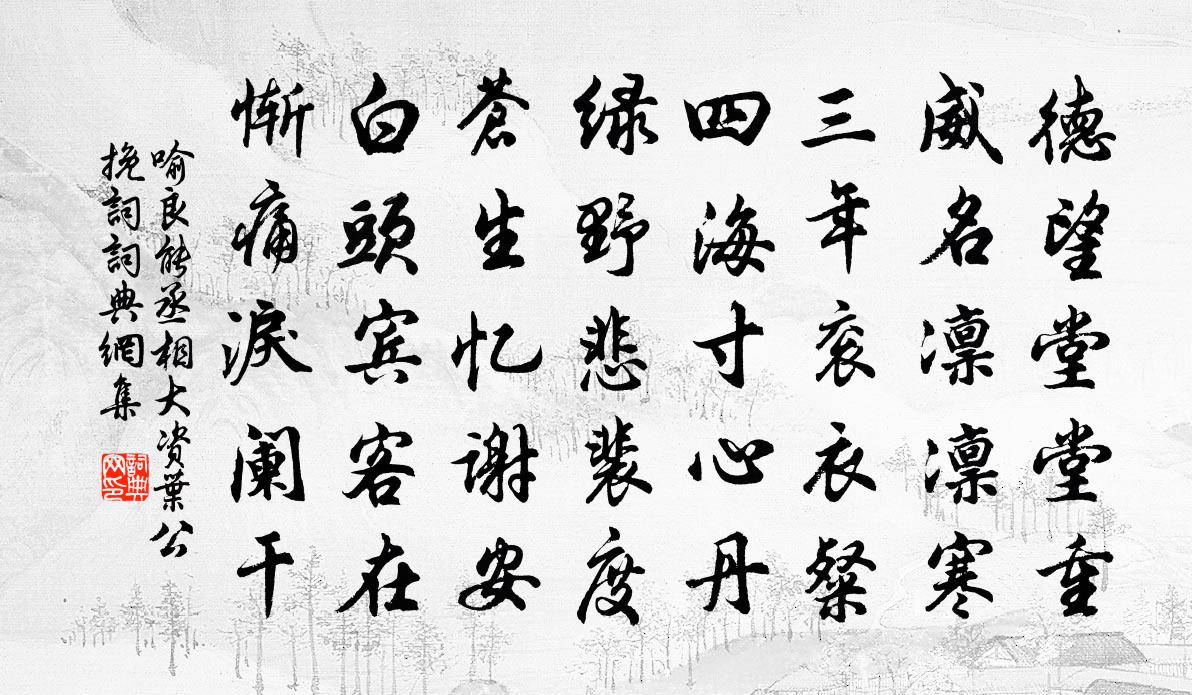 德望堂堂重
威名凛凛寒
三年衮衣粲
四海寸心丹
绿野悲裴度
苍生忆谢安
白头宾客在
惭痛泪阑干
喻良能丞相大资葉公
挽詞詞典網集
詞典网印